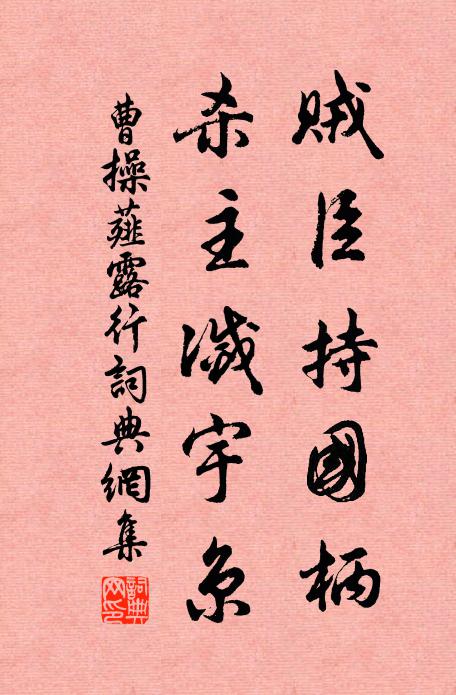 賊臣持國柄
杀主滅宇京
曹操薤露行詞典網集
詞典网印